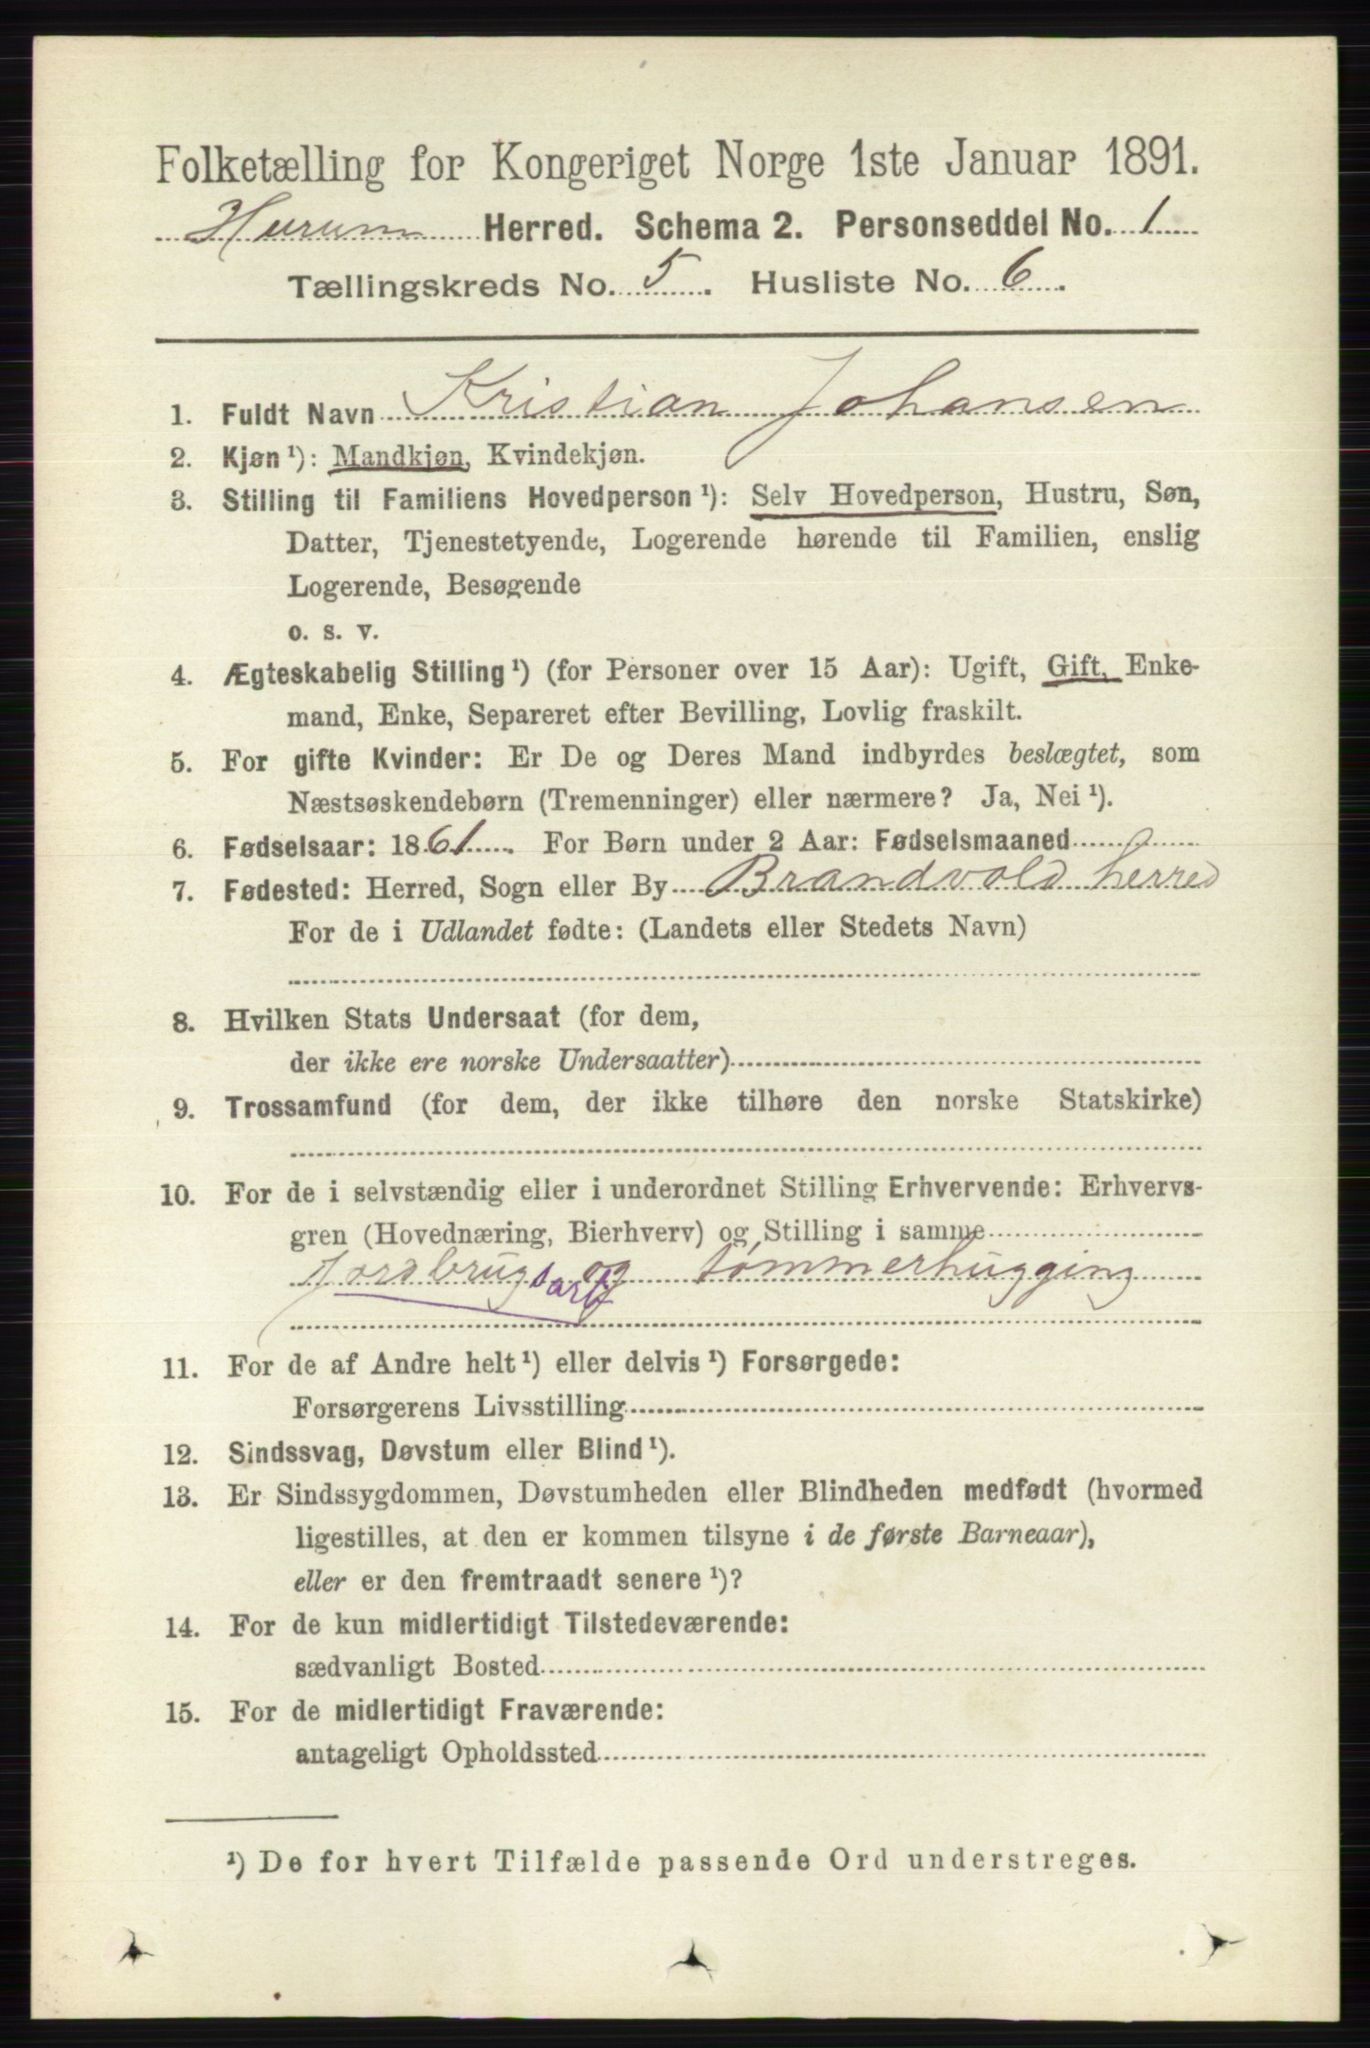 Folketælling for Kongeriget Norge 1ste Januar 1891.
Hurum Herred. Schema 2. Personseddel No. 1
Tællingskreds No. 5. Husliste No. 6.
1. Fuldt Navn Kristian Johansen
2. Kjøn ¹): Mandkjøn, Kvindekjøn.
3. Stilling til Familiens Hovedperson ¹): Selv Hovedperson, Hustru, Søn,
Datter, Tjenestetyende, Logerende hørende til Familien, enslig
Logerende, Besøgende
o. s. v.
4. Ægteskabelig Stilling ¹) (for Personer over 15 Aar): Ugift, Gift, Enke-
mand, Enke, Separeret efter Bevilling, Lovlig fraskilt.
5. For gifte Kvinder: Er De og Deres Mand indbyrdes beslægtet, som
Næstsøskendebørn (Tremenninger) eller nærmere? Ja, Nei ¹).
6. Fødselsaar: 1861. For Børn under 2 Aar: Fødselsmaaned
7. Fødested: Herred, Sogn eller By Brandvold herred
For de i Udlandet fødte: (Landets eller Stedets Navn)
8. Hvilken Stats Undersaat (for dem,
der ikke ere norske Undersaatter)
9. Trossamfund (for dem, der ikke tilhøre den norske Statskirke)
10. For de i selvstændig eller i underordnet Stilling Erhvervende: Erhvervs-
gren (Hovednæring, Bierhverv) og Stilling i samme
Jordbrugsarb og tømmerhugging
11. For de af Andre helt ¹) eller delvis ¹) Forsørgede:
Forsørgerens Livsstilling
12. Sindssvag, Døvstum eller Blind ¹).
13. Er Sindssygdommen, Døvstumheden eller Blindheden medfødt (hvormed
ligestilles, at den er kommen tilsyne i de første Barneaar),
eller er den fremtraadt senere ¹)?
14. For de kun midlertidigt Tilstedeværende:
sædvanligt Bosted
15. For de midlertidigt Fraværende:
antageligt Opholdssted
¹) De for hvert Tilfælde passende Ord understreges.